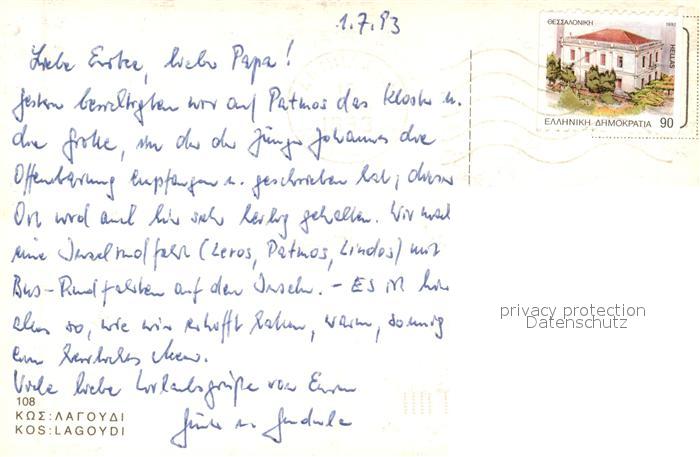 1.7.93
Liebe Erika, lieber Papa!
Gestern besichtigten wir auf Patmos das Kloster u.
die Grotte, in der der Jünger Johannes die
Offenbarung empfangen u. geschrieben hat; dieser
Ort wird auch hier sehr heilig gehalten. Wir
eine Inselrundfahrt (Leros, Patmos, Lindos) mit
Bus-Rundfahrten auf den Inseln. - Es ist hier
alles so, wie wir erhofft haben, warm, sonnig
ein herrliches Meer.
Viele liebe Urlaubsgrüße von Euren
u. Gudula
ΘΕΣΣΑΛΟΝΙΚΗ 1992
HELLAS
ΕΛΛΗΝΙΚΗ ΔΗΜΟΚΡΑΤΙΑ 90
privacy protection
Datenschutz
108
ΚΩΣ:ΛΑΓΟΥΔΙ
KOS:LAGOYDI